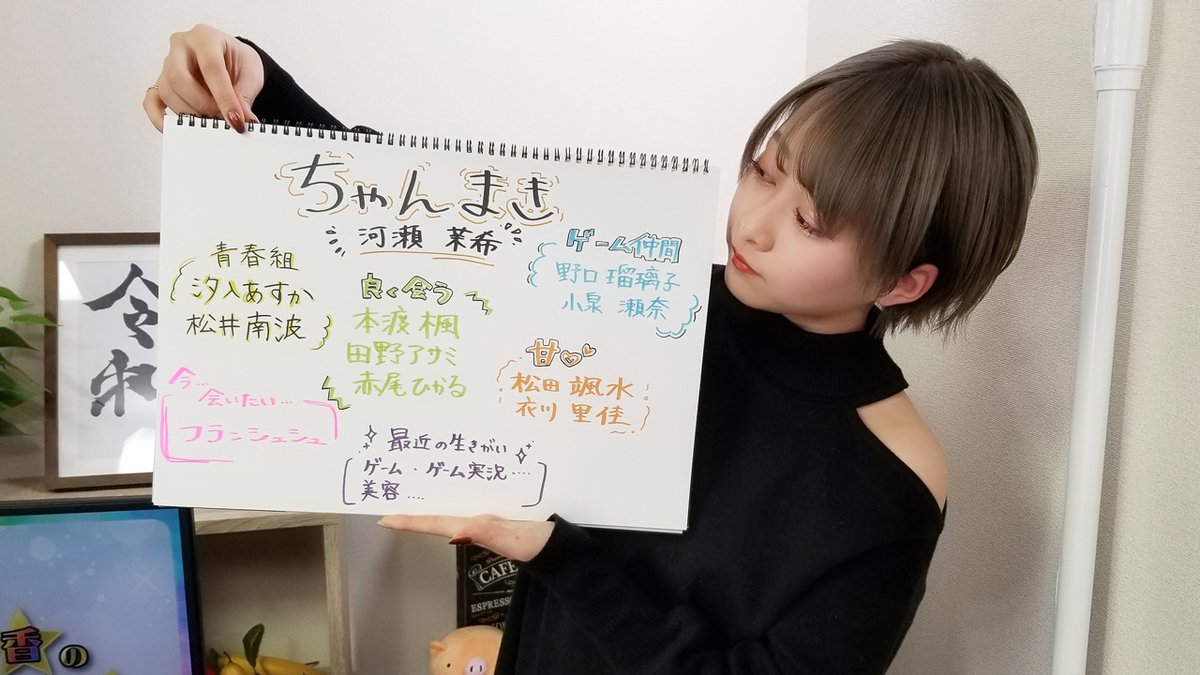 ちゃんまき
河瀬 茉希
青春組
汐入あすか
松井南波
良く会う
本渡 楓
田野アサミ
赤尾ひかる
ゲーム仲間
野口 瑠璃子
小泉 瀬奈
甘♡
松田 颯水
衣川 里佳
今…
会いたい…
フランシュシュ
最近の生きがい
ゲーム・ゲーム実況….
美容….
令和
香の
CAFE
ESPRESS